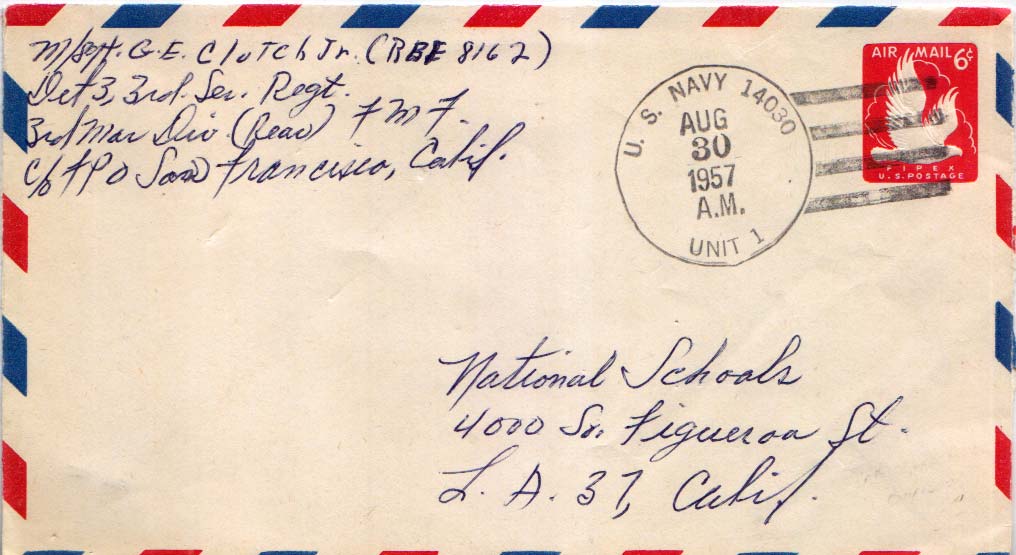 M/Sgt. G. E. Clutch Jr. (RBE 8162)
Det 3, 3rd. Ser. Regt.
3rd Mar Div (Rear) F M F.
c/o FPO San Francisco, Calif.
U. S. NAVY 14030
AUG
30
1957
A.M.
UNIT 1
AIR MAIL 6¢
FIPEX
U.S. POSTAGE
National Schools
4000 So. Figueroa St.
L. A. 37, Calif.